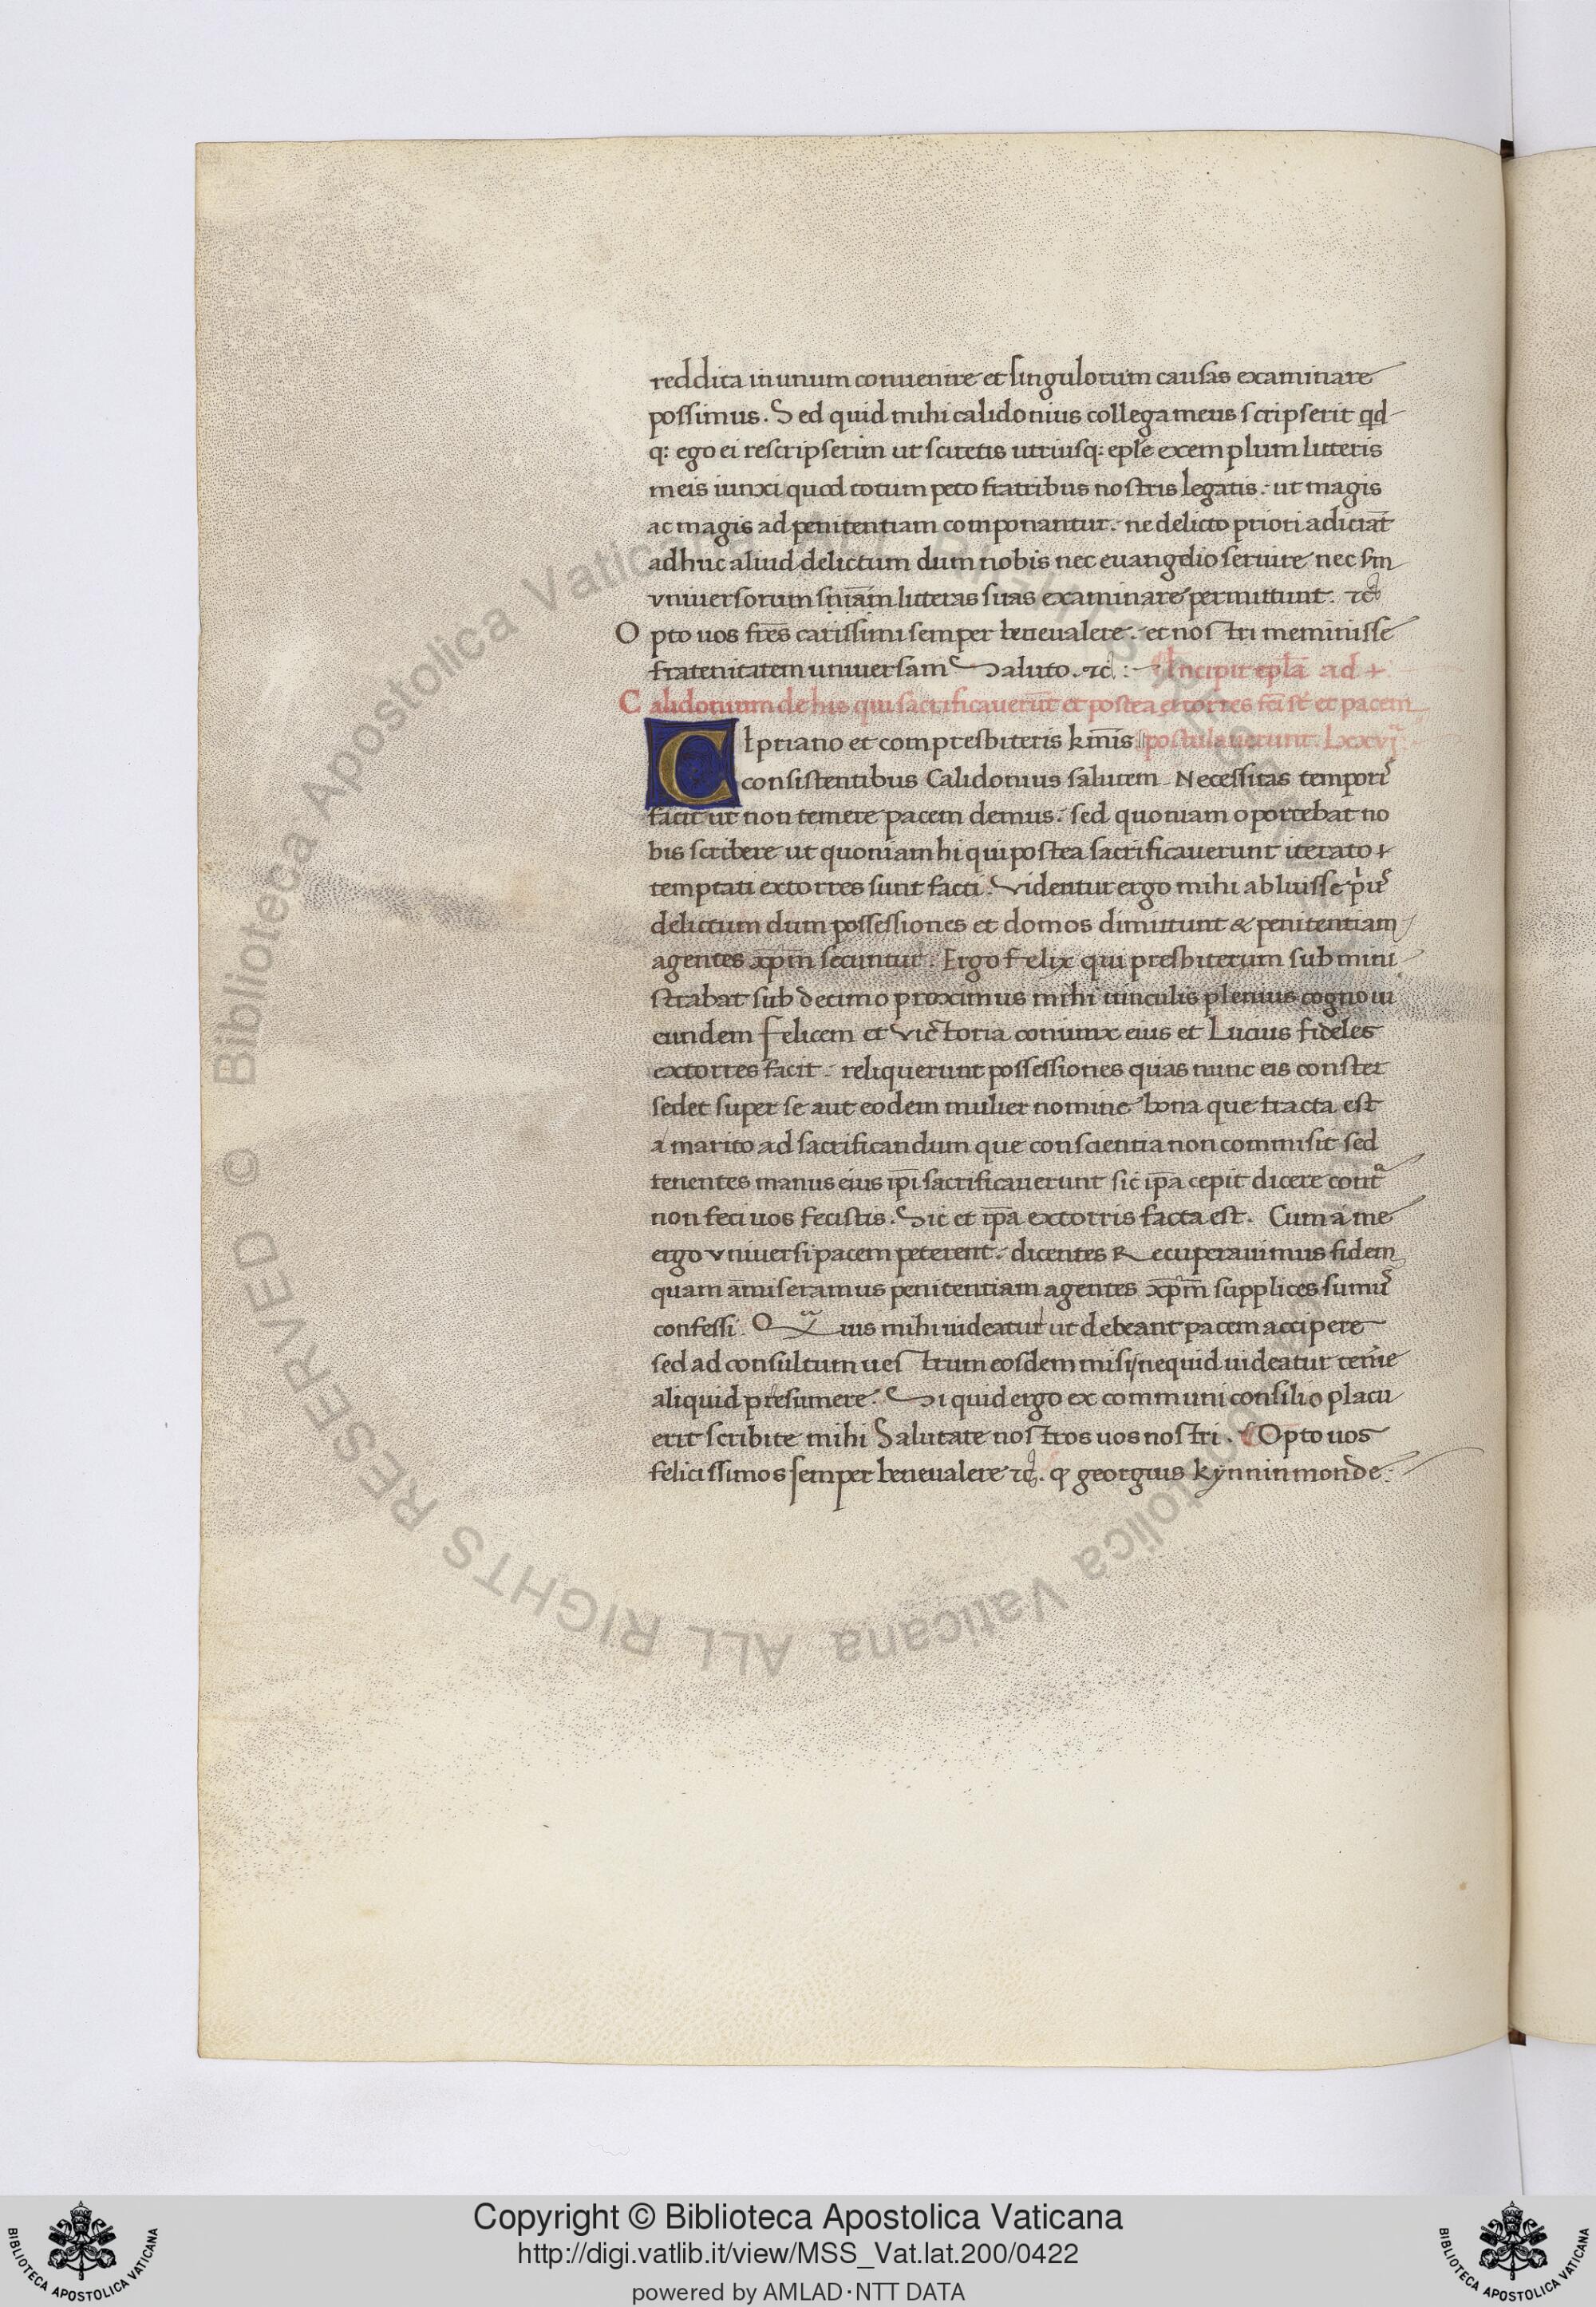 reddita in unum conuenire et singulorum causas examinare
possimus. Sed quid mihi calidonius collega meus scripserit qđ
q: ego ei rescripserim ut sciretis utriusq: eplē exemplum litteris
meis iunxi quod totum peto fratribus nostris legatis. ut magis
ac magis ad penitentiam componantur. ne delicto priori adiciāt
adhuc aliud delictum dum nobis nec euangelio seruire nec sm̄
vniuersorum sniām litteras suas examinare permittunt. ⁊c̄
Opto uos frēs carissimi semper beneualere. et nostri meminisse
fratenitatem uniuersam Saluto. ⁊c̄ :- Incipit eplā ad +
Calidonium de his qui sacrificauerūt et postea extorres fcī st̄ et pacem
postulauerunt. Lxxvj.
CIpriano et compresbiteris kīnis
consistentibus Calidonius salutem. Necessitas temporꝰ
facit ut non temere pacem demus. sed quoniam oportebat no
bis scribere ut quoniam hi qui postea sacrificauerunt iterato +
temptati extorres sunt facti. Videntur ergo mihi abluisse pͥuꝰ
delictum dum possessiones et domos dimittunt & penitentiam
agentes xp̄m secuntur. Ergo Felix qui presbiterum submini
strabat sub decimo proximus mihi uinculis plenius cognoui
eundem felicem et victoria coniunx eius et Lucius fideles
extorres facit. reliquerunt possessiones quas nunc eis conster
sedet super se aut eodem mulier nomine bona que tracta est
a marito ad sacrificandum que conscientia non commisit sed
tenentes manus eius ip̄i sacrificauerunt sic ip̄a cepit dicere contᵃ
non feci uos fecistis. Sic et ip̄a extorris facta est. Cum a me
ergo vniuersi pacem peterent. dicentes Recuperauimus fidem
quam amiseramus penitentiam agentes xp̄m supplices sumꝰ
confessi. Qᵃuis mihi uideatur ut debeant pacem accipere
sed ad consultum uestrum eosdem misi, ne quid uidear tem̄e
aliquid presumere. Si quid ergo ex communi consilio placu
erit scribite mihi Salutate nostros uos nostri. Opto uos
felicissimos semper beneualere ⁊c̄. georgius kynninmonde.
Copyright © Biblioteca Apostolica Vaticana
http://digi.vatlib.it/view/MSS_Vat.lat.200/0422
powered by AMLAD·NTT DATA
© Biblioteca Apostolica Vaticana ALL RIGHTS RESERVED
© Biblioteca Apostolica Vaticana ALL RIGHTS RESERVED
BIBLIOTECA APOSTOLICA VATICANA
BIBLIOTECA APOSTOLICA VATICANA